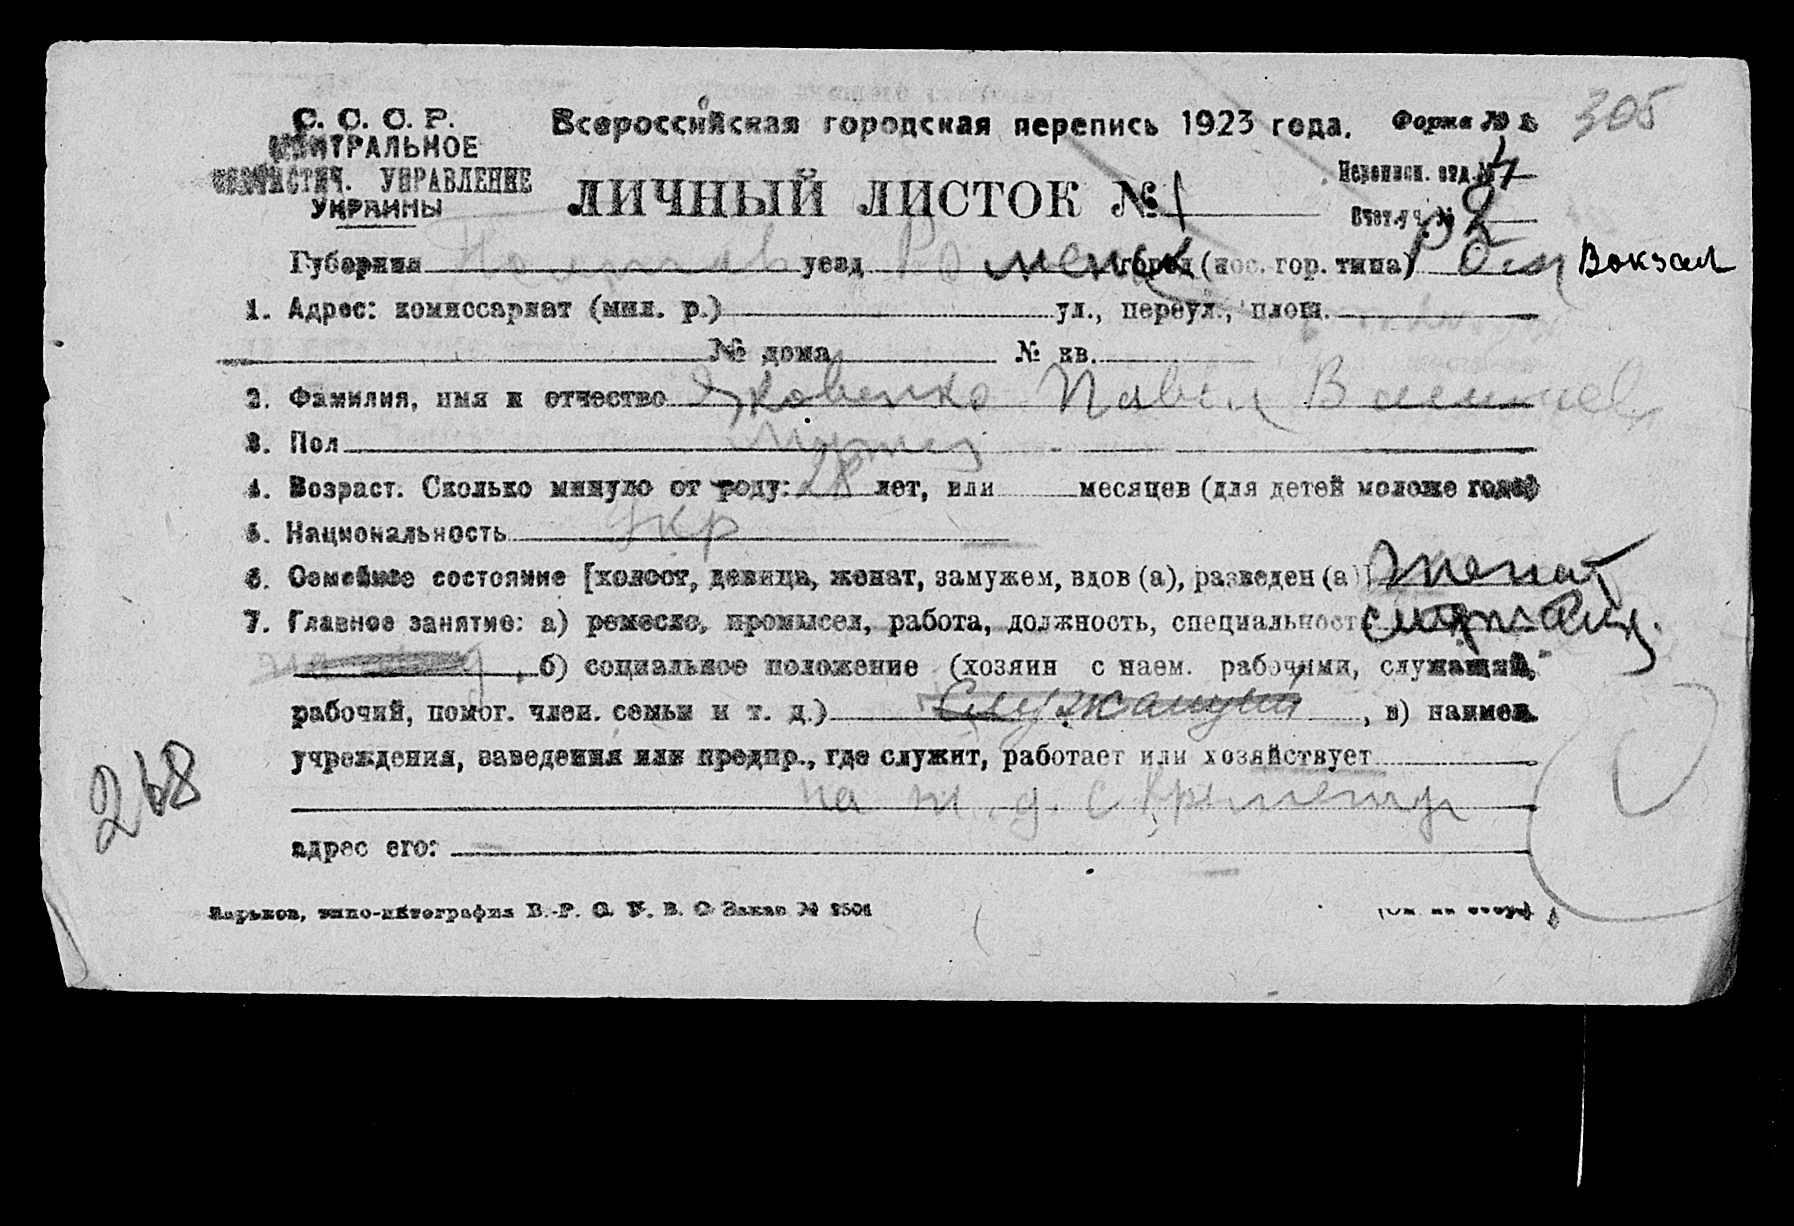 305
С. С. С. Р.
ЦЕНТРАЛЬНОЕ
СТАТИСТИЧ. УПРАВЛЕНИЕ
УКРАИНЫ
Всероссийская городская перепись 1923 года.
Форма № 1
ЛИЧНЫЙ ЛИСТОК № 1
Переписн. отд. № 4
Счет. уч. № 2
Губерния Полтав уезд Роменск город (пос. гор. типа) Ромн Вокзал
1. Адрес: комиссариат (мил. р.) ул., переул., площ.
№ дома № кв.
2. Фамилия, имя и отчество Яковенко Павел Васильев
3. Пол мужск
4. Возраст. Сколько минуло от роду: 28 лет, или месяцев (для детей моложе года)
5. Национальность Укр
6. Семейное состояние [холост, девица, женат, замужем, вдов (а), разведен (а)] женат
7. Главное занятие: а) ремесло, промысел, работа, должность, специальность
, б) социальное положение (хозяин с наем. рабочими, служащий,
рабочий, помог. член. семьи и т. д.) Служащий, в) наимен.
учреждения, заведения или предпр., где служит, работает или хозяйствует
на ж. д. с Кременчуг
адрес его:
268
Харьков, типо-литография В.-Р. С. У. В. О Заказ № 2501